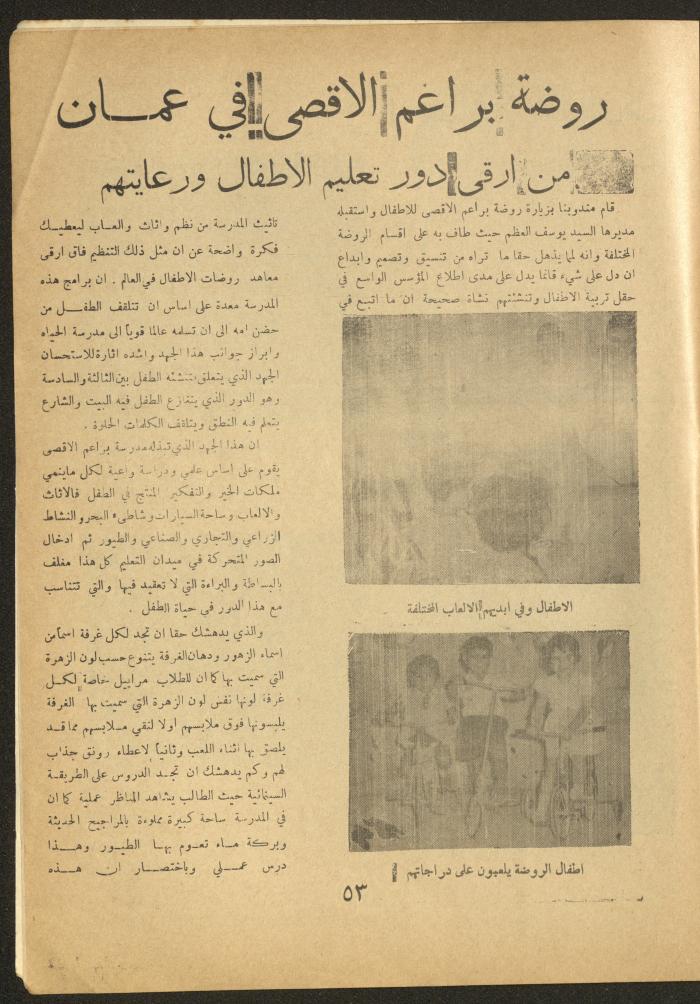 روضة براعم الاقصى في عمـــان
من ارقى دور تعليم الاطفال ورعايتهم
قام مندوبنا بزيارة روضة براعم الاقصى للاطفال واستقبله
مديرها السيد يوسف العظم حيث طاف به على اقسام الروضة
المختلفة وانه لما يذهل حقا ما تراه من تنسيق وتصميم وابداع
ان دل على شيء فانما يدل على مدى اطلاع المؤسس الواسع في
حقل تربية الاطفال وتنشئتهم نشأة صحيحة ان ما اتبع في
الاطفال وفي ايديهم الالعاب المختلفة
اطفال الروضة يلعبون على دراجاتهم
تاثيث المدرسة من نظم واثاث والعاب ليعطيـك
فكرة واضحة عن ان مثل ذلك التنظيم فاق ارقى
معاهد روضات الاطفال في العالم . ان برامج هذه
المدرسة معدة على اساس ان تتلقف الطفـــل من
حضن امه الى ان تسلمه عالما قوياً الى مدرسة الحياه
وابراز جوانب هذا الجهد واشده اثارة للاستحسان
الجهد الذي يتعلق بتنشئه الطفل بين الثالثة والسادسة
وهو الدور الذي يتنازع الطفل فيه البيت والشارع
يتعلم فيه النطق ويتلقف الكلمات الحلوة .
ان هذا الجهد الذي تبذله مدرسة براعم الاقصى
يقوم على اساس علمي ودراسة واعية لكل ماينمي
ملكات الخير والتفكير المنتج في الطفل فالاثاث
والالعاب وساحة السيارات وشاطىء البحر والنشاط
الزراعي والتجاري والصناعي والطيور ثم ادخال
الصور المتحركة في ميدان التعليم كل هذا مغلف
بالبساطة والبراءة التي لا تعقيد فيها والتي تتناسب
مع هذا الدور في حياة الطفل .
والذي يدهشك حقا ان تجد لكل غرفة اسماً من
اسماء الزهور ودهان الغرفة يتنوع حسب لون الزهرة
التي سميت بها كما ان للطلاب مراييل خاصة لكـل
غرفة لونها نفس لون الزهرة التي سميت بها الغرفة
يلبسونها فوق ملابسهم اولا لتقي مـلابسهم مما قـد
يلصق بها اثناء اللعب وثانياً لاعطاء رونق جذاب
لهم وكم يدهشك ان تجـد الدروس على الطريقة
السينمائية حيث الطالب يشاهد المناظر عملية كما ان
في المدرسة ساحة كبيرة مملوءة بالمراجيح الحديثة
وبركة مـاء تعـوم بهـا الطيـور وهـــذا
درس عمـــلي وباختصـار ان هـــذه
٥٣